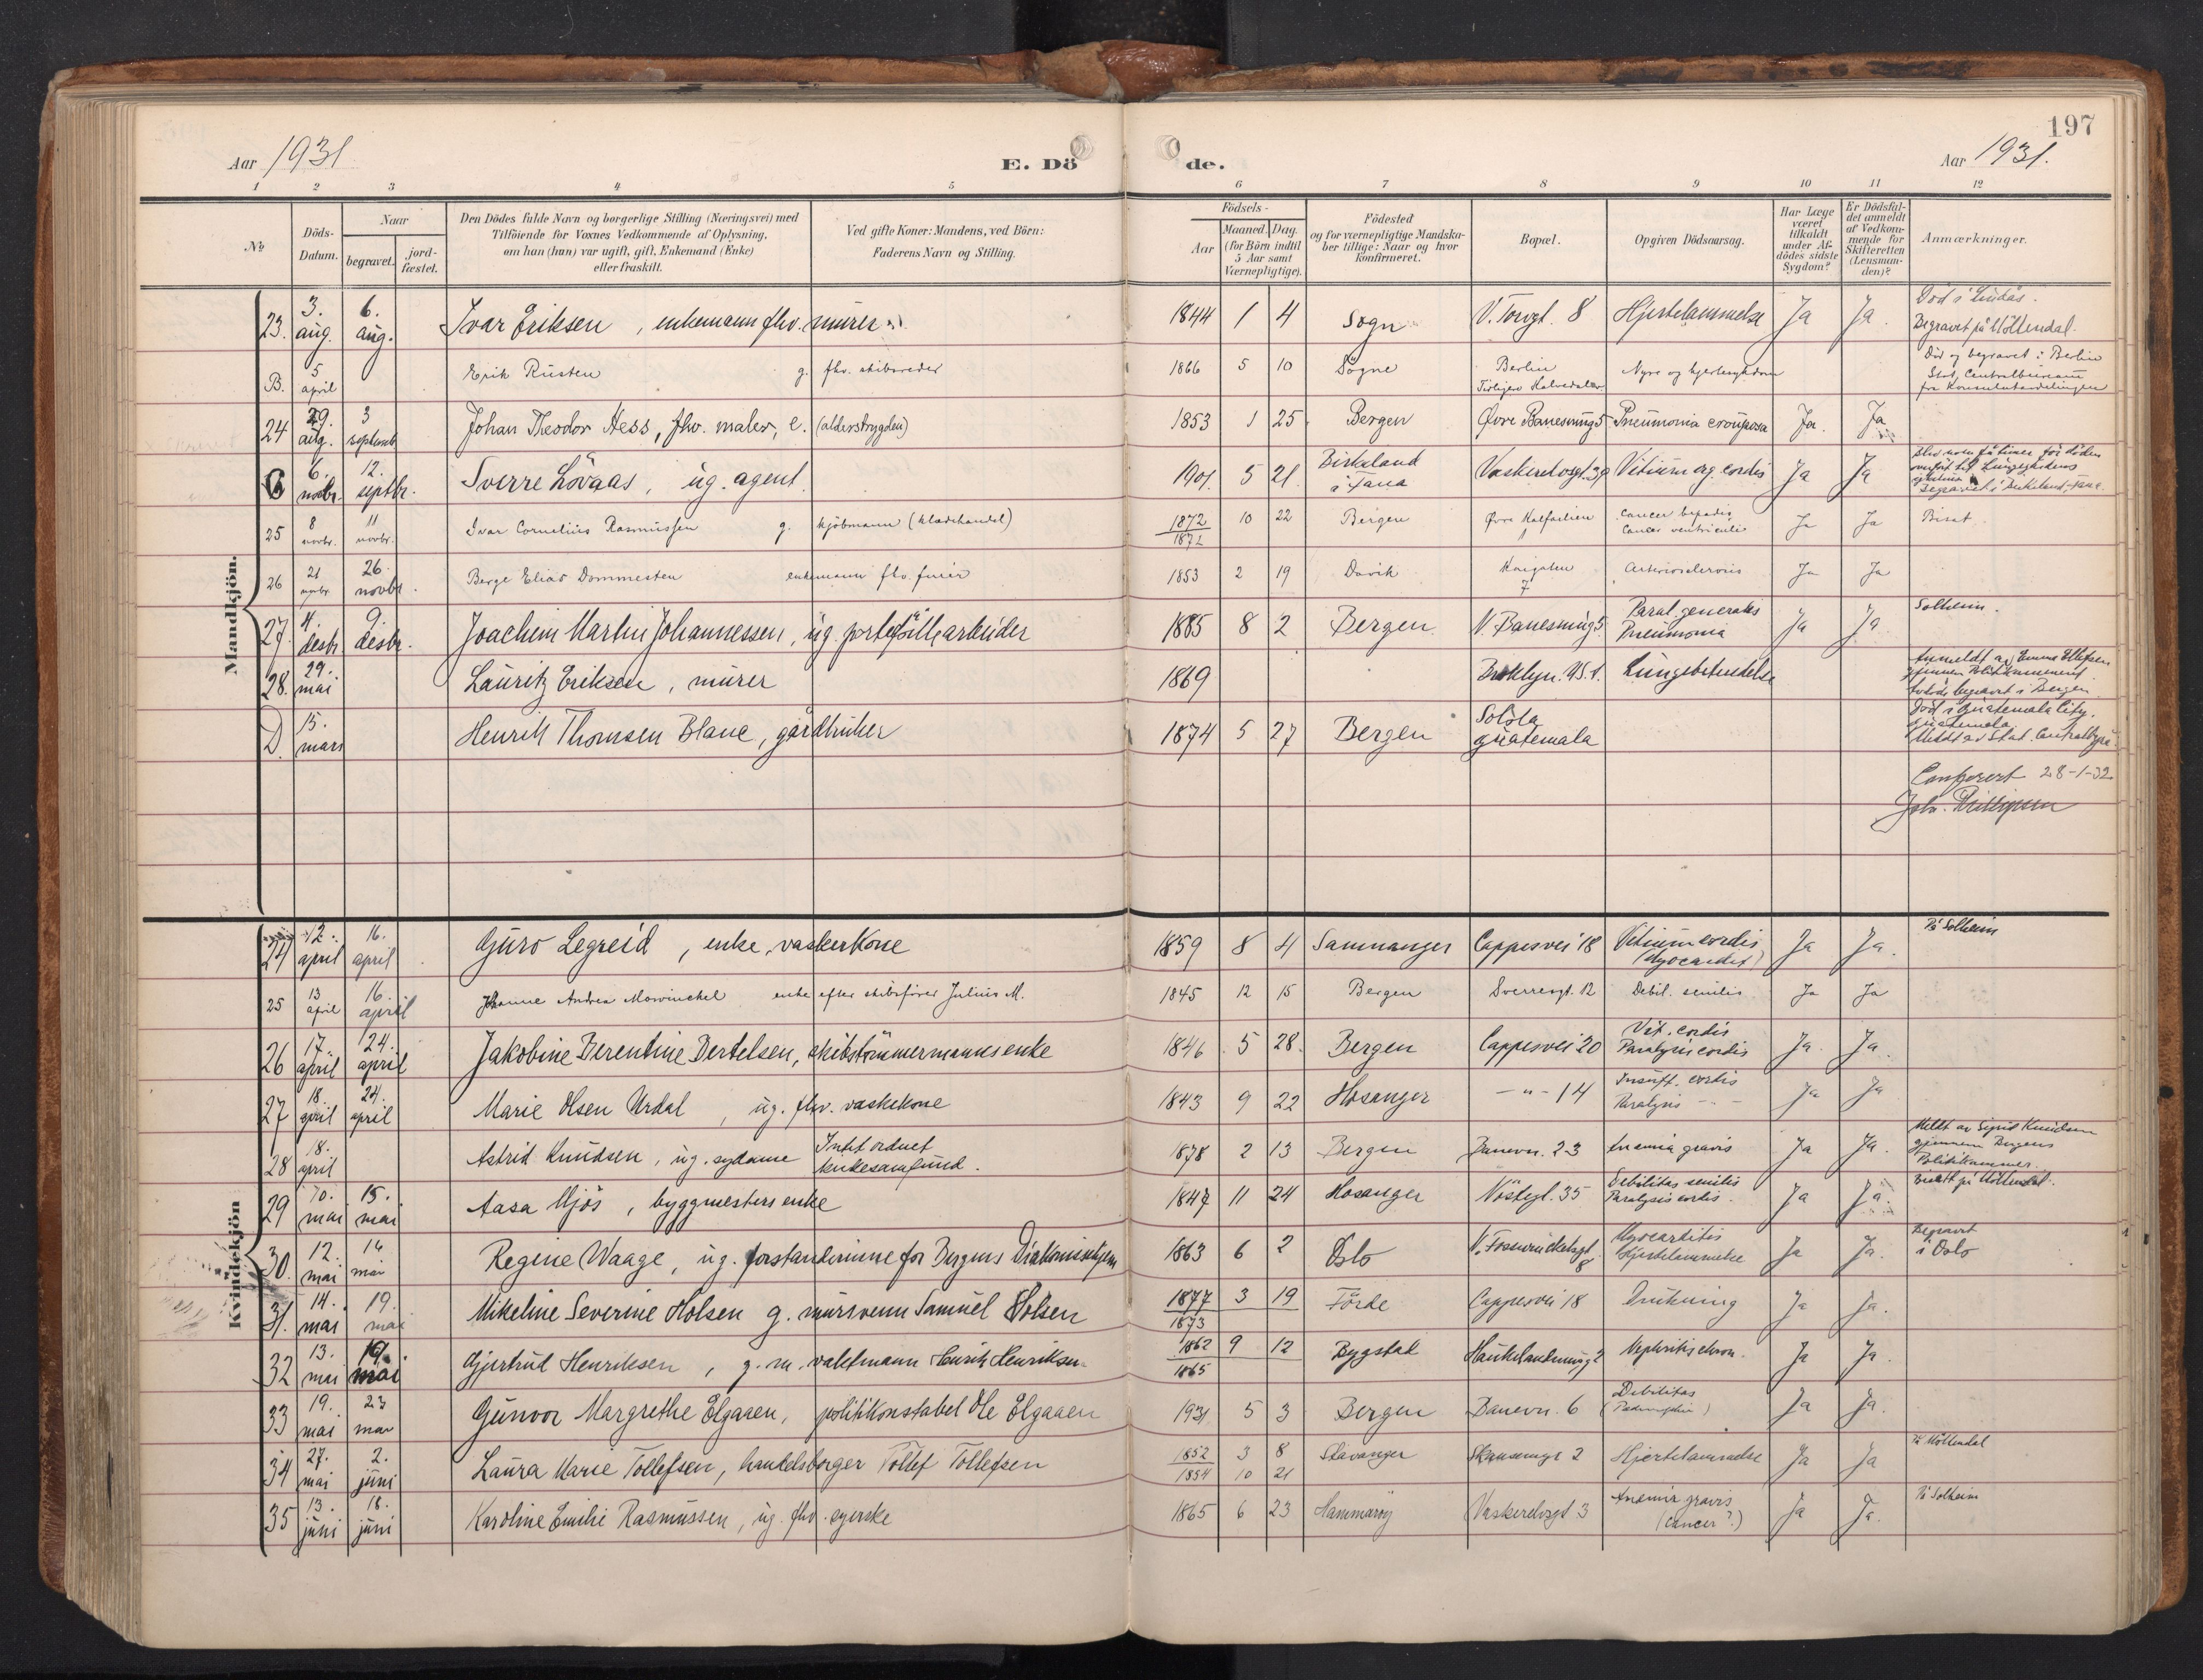 197
Aar 1931
E. Döde.
Aar 1931.
1 2 3 4 5 6 7 8 9 10 11 12
No
Döds-Datum.
Naar
begravet.
jordfæstet.
Den Dödes fulde Navn og borgerlige Stilling (Næringsvei) med
Tilföiende for Voxnes Vedkommende af Oplysning,
om han (hun) var ugift, gift, Enkemand (Enke)
eller fraskilt.
Ved gifte Koner: Mandens, ved Börn:
Faderens Navn og Stilling.
Födsels-
Aar
Maaned. Dag.
(for Börn indtil
5 Aar samt
Værnepligtige).
Födested
og for værnepligtige Mandskaber tillige: Naar og hvor
konfirmeret.
Bopæl.
Opgiven Dödsaarsag.
Har Læge
været
tilkaldt
under Afdödes sidste
Sygdom?
Er Dödsfaldet anmeldt
af Vedkommende for
Skifteretten
(Lensmanden)?
Anmærkninger.
Mandkjön.
23. 3. aug. 6. aug. Ivar Eriksen, enkemann fhv. murer. 1844 1 4 Sogn V. Torvgt. 8 Hjertelammelse Ja Ja. Död i Lindås.
Begravet på Möllendal.
B. 5 april Erik Rusten g. fhv. skibsreder 1866 5 10 Sögne Berlin Nyre og hjertesykdom Död og begravet i Berlin
Stat. Centralbureau
fra Konsulatavdelingen
24 29. aug. 3 septemb Johan Theodor Hess, fhv. maler, e. (alderstrygden) 1853 1 25 Bergen Övre Banesmug 5 Pneumonia crouposa Ja. Ja
C 6. novbr. 12. septbr. Sverre Lövaas, ug. agent. 1901 5 21. Birkeland i Fana Vaskerelvsgt. 39 Vitium org. cordis Ja Ja
25 8 novbr. 11 novbr. Ivar Cornelius Rasmussen g. kjöbmann (klædehandel) 1872 1871 10 22 Bergen Övre Kalfarlien Cancer hepatis
Cancer ventriculi Ja Ja Bisat.
26 21 novbr. 26. novbr. Berge Elias Dommesten enkemann fhv. furér 1853 2 19 Davik Kongaten 7 Arteriosclerosis Ja Ja
27. 4. desbr 9. desbr. Joachim Martin Johannessen, ug. porteföllearbeider 1885 8 2 Bergen V. Banesmug 5 Paral. generales
Pneumonia Ja Ja Solheim.
28. 29. mai Lauritz Eriksen, murer 1869 Brooklyn. U.S.A. Lungebetendelse Anmeldt av Emma Ellefsen
gjennem Politikammeret
avdöde begravet i Bergen
D. 15. mars Henrik Thomsen Blanc, gårdbruker 1874 5 27 Bergen Solola
Guatemala Död i Guatemala City,
Guatemala.
Meldt av Stat. Centralbyrå
Conferert 28-1-32
Kvindekjön
24 12. april 16. april Guro Legreid, enke, vaskerkone 1859 8 4 Samnanger Cappesvei 18 Vitium cordis
(Myocardit) Ja Ja. På Solheim
25 13 april 16. april Johanne Andrea Mowinckel enke efter skibsförer Julius M. 1845 12 15 Bergen Sverresgt. 12 Debil. senilis Ja Ja
26 17 april 24. april Jakobine Berentine Bertelsen, skibstömmermanns enke 1846 5 28. Bergen Cappesvei 20 Vit. cordis
Paralysis cordis Ja. Ja.
27 18. april 24. april Marie Olsen Urdal, ug. fhv. vaskekone 1843 9 22 Hosanger - " - 14 Insuff. cordis
Paralysis - " - Ja Ja
28 18. april Astrid Knudsen, ug. sydame Intet ordnet
kirkesamfund. 1878 2 13 Bergen Banevn. 23 Anemia gravis Ja Ja. Meldt av Sigrid Knudsen
gjennem Bergens
Politikammer.
29 10. mai 15. mai Aasa Mjös, byggmesters enke 1847 11 24 Hosanger Nöstegt. 35 Debilitas senilis
Paralysis cordis. Ja Ja. på Möllendal.
30. 12. mai 16 mai Regine Waage, ug. forstanderinne for Bergens Diakonissehjem 1863 6 2 Oslo V. Fosswinckelsgt. 8 Myocarditis
Hjertelammelse Ja Ja. Begravet
i Oslo
31. 14. mai 19. mai Mikeline Severine Holsen g. mursvenn Samuel Holsen 1877 1873 3 19 Förde Cappesvei 18 Drukning Ja Ja.
32 13. mai 19. mai Gjertrud Henriksen, g. m. vaktmann Henrik Henriksen 1862 1865 9 12 Bygstad Haukelandsmug 2 Nephritis chron. Ja Ja.
33 19. mai 23 mai Gunvor Margrethe Elgaaen, politikonstabel Ole Elgaaen 1931 5 3 Bergen Banevn. 6 Debilitas Ja Ja.
34 27. mai 2. juni Laura Marie Tollefsen, handelsborger Tollef Tollefsen 1852 3 8 1854 10 21 Stavanger Skansemgt 2 Hjertelammelse Ja Ja På Möllendal
35 13. juni 18. juni Karoline Emilie Rasmussen, ug. fhv. syerske 1865 6 23 Hammaröy Vaskerelvsgt 3 Anemia gravis
(cancer?) Ja Ja. På Solheim